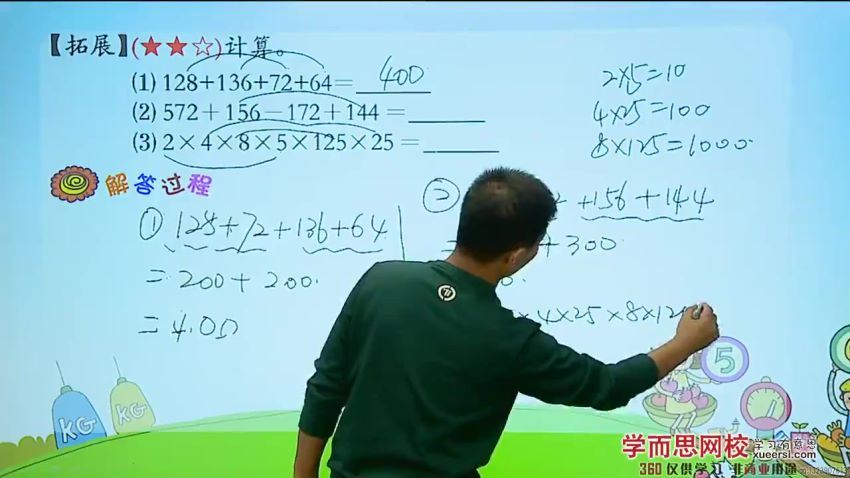 【拓展】(★★☆)计算。
(1) 128+136+72+64= 400
(2) 572+156-172+144=
(3) 2×4×8×5×125×25=
2×5=10
4×25=100
8×125=1000
解答过程
① 128+72+136+64
=200+200
=400
② +156+144
+300
×4×25×8×12
KG
KG
5
学而思网校
学习有意思
xueersi.com
360 仅供学习 非商业用途